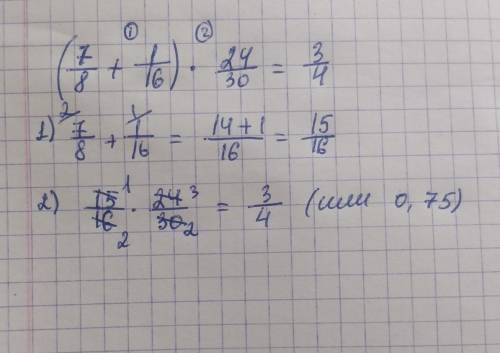 ① ②
(7/8 + 1/16) · 24/30 = 3/4
1) 7/8 (2 + 1/16 (1 = (14 + 1)/16 = 15/16
2) 15 1/16 2 · 24 3/30 2 = 3/4 (или 0,75)